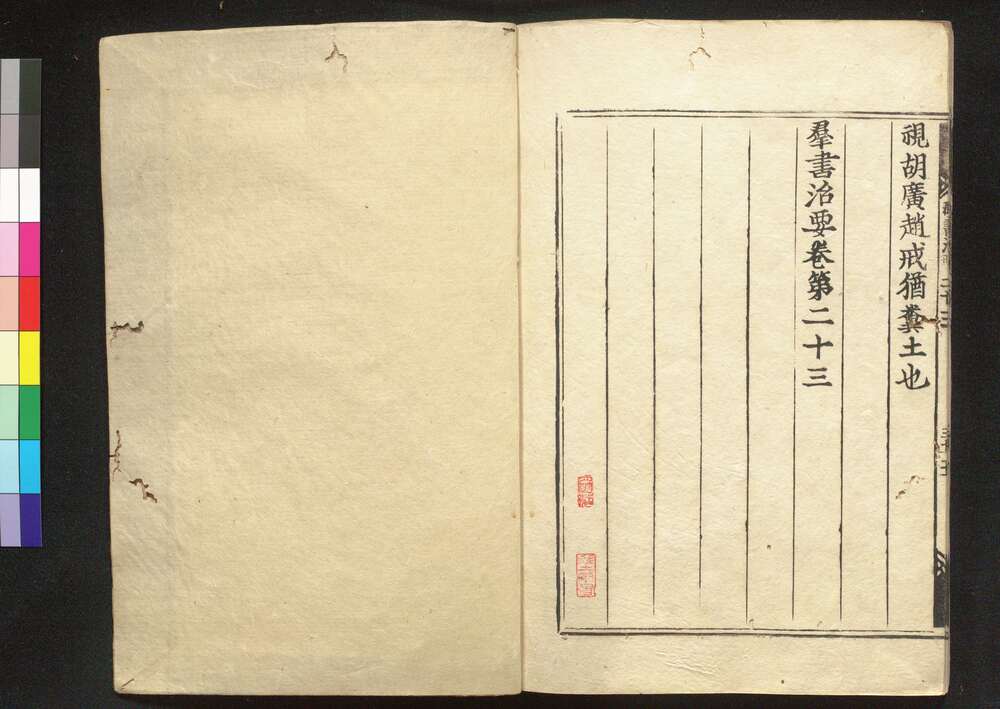 視胡廣趙戒猶糞土也
羣書治要卷第二十三